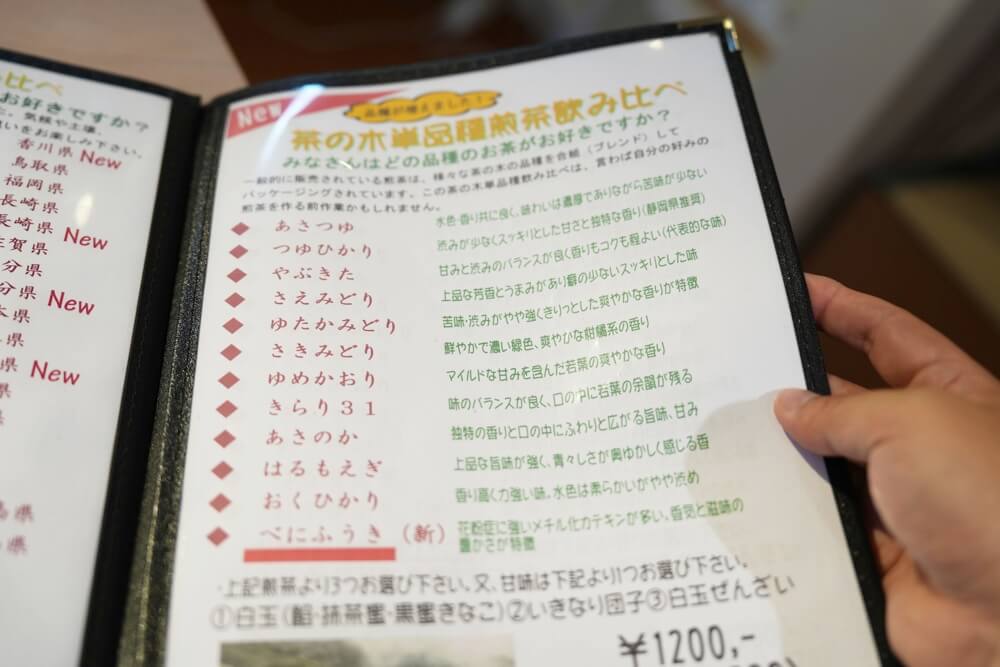 比べ
お好きですか？
た。気候や土壌、
いをお楽しみ下さい。
香川県 New
鳥取県
福岡県
長崎県
長崎県 New
佐賀県
分県
分県 New
本県
県
県 New
県
島県
県
New
品種が増えました！
茶の木単品種煎茶飲み比べ
みなさんはどの品種のお茶がお好きですか？
一般的に販売されている煎茶は、様々な茶の木の品種を合組（ブレンド）して
パッケージングされています。この茶の木単品種飲み比べは、言わば自分の好みの
煎茶を作る前作業かもしれません。
◆ あさつゆ 水色・香り共に良く、味わいは濃厚でありながら苦味が少ない
◆ つゆひかり 渋みが少なくスッキリとした甘さと独特な香り（静岡県推奨）
◆ やぶきた 甘みと渋みのバランスが良く香りもコクも程よい（代表的な味）
◆ さえみどり 上品な芳香とうまみがあり癖の少ないスッキリとした味
◆ ゆたかみどり 苦味・渋みがやや強くきりっとした爽やかな香りが特徴
◆ さきみどり 鮮やかで濃い緑色、爽やかな柑橘系の香り
◆ ゆめかおり マイルドな甘みを含んだ若葉の爽やかな香り
◆ きらり３１ 味のバランスが良く、口の中に若葉の余韻が残る
◆ あさのか 独特の香りと口の中にふわりと広がる旨味、甘み
◆ はるもえぎ 上品な旨味が強く、青々しさが奥ゆかしく感じる香
◆ おくひかり 香り高く力強い味。水色は柔らかいがやや渋め
◆ べにふうき（新） 花粉症に強いメチル化カテキンが多い。香気と滋味の
豊かさが特徴
・上記煎茶より3つお選び下さい。又、甘味は下記より1つお選び下さい。
①白玉（餡・抹茶蜜・黒蜜きなこ）②いきなり団子③白玉ぜんざい
￥1200,-